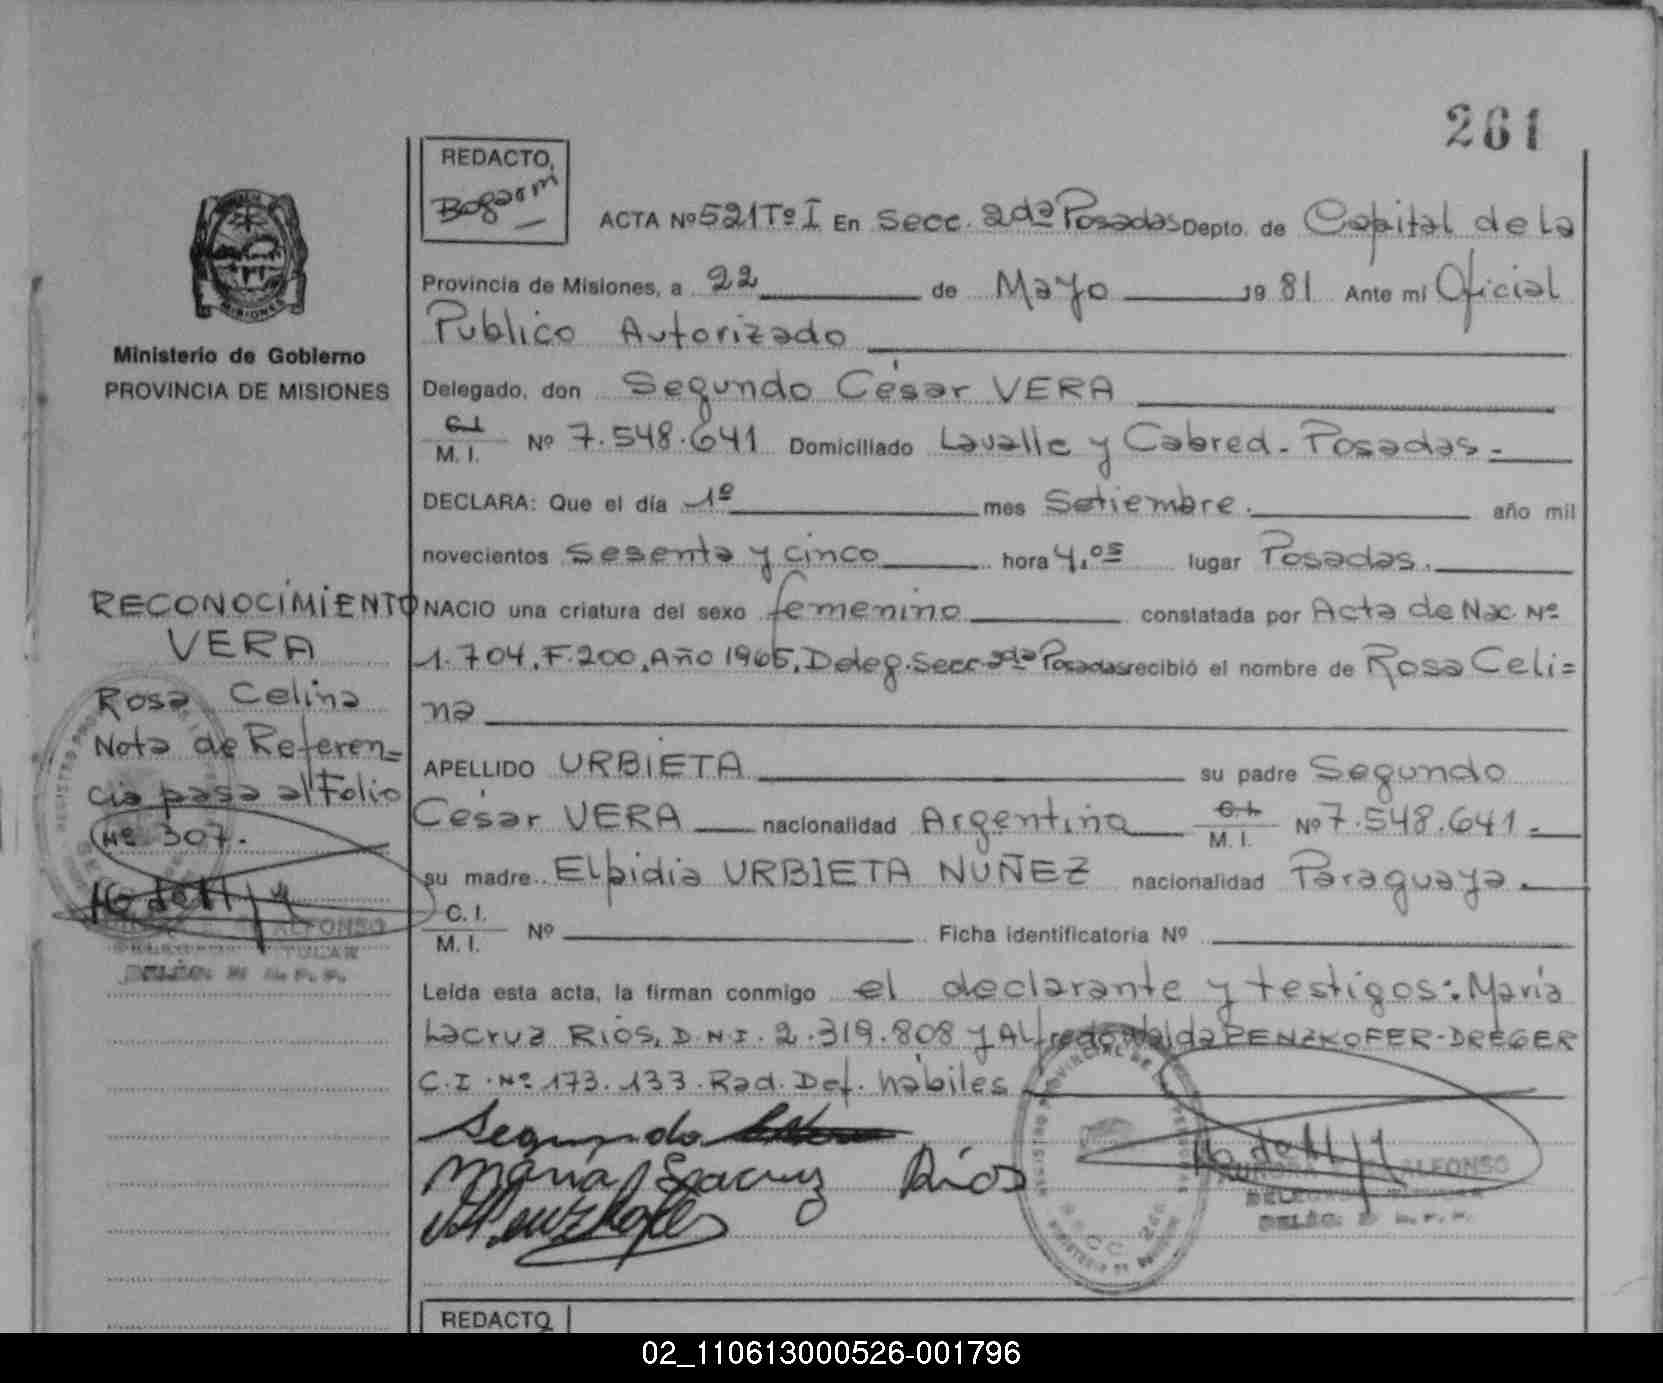 261
REDACTO,
Bogarin
ACTA Nº 521 Tº I En Secc. 2da Posadas Depto. de Capital de la
Provincia de Misiones, a 22 de Mayo 19 81 Ante mi Oficial
Publico Autorizado
Ministerio de Gobierno
PROVINCIA DE MISIONES
Delegado, don Segundo César VERA
C.I. M. I. Nº 7.548.641 Domiciliado Lavalle y Cabred - Posadas.-
DECLARA: Que el día 1º mes Setiembre. año mil
novecientos Sesenta y cinco hora 4,05 lugar Posadas.
NACIO una criatura del sexo femenino constatada por Acta de Nac. Nº
1.704, F. 200, Año 1965, Deleg. Secc. 2da Posadas recibió el nombre de Rosa Celi=
na
APELLIDO URBIETA su padre Segundo
César VERA nacionalidad Argentina C.I. M. I. Nº 7.548.641.-
su madre Elpidia URBIETA NUÑEZ nacionalidad Paraguaya.
C. I. M. I. Nº Ficha identificatoria Nº
Leída esta acta, la firman conmigo el declarante y testigos: María
Lacruz Ríos, D.N.I. 2.319.808 y Alfredo PENZKOFER-DREGER
C.I. Nº 173.133. Rad. Def. hábiles
Segundo
María Lacruz Ríos
RECONOCIMIENTO
VERA
Rosa Celina
Nota de Referen=
cia pasa al Folio
Nº 307.
ALFONSO
TITULAR
ALFONSO
REDACTO
02_110613000526-001796